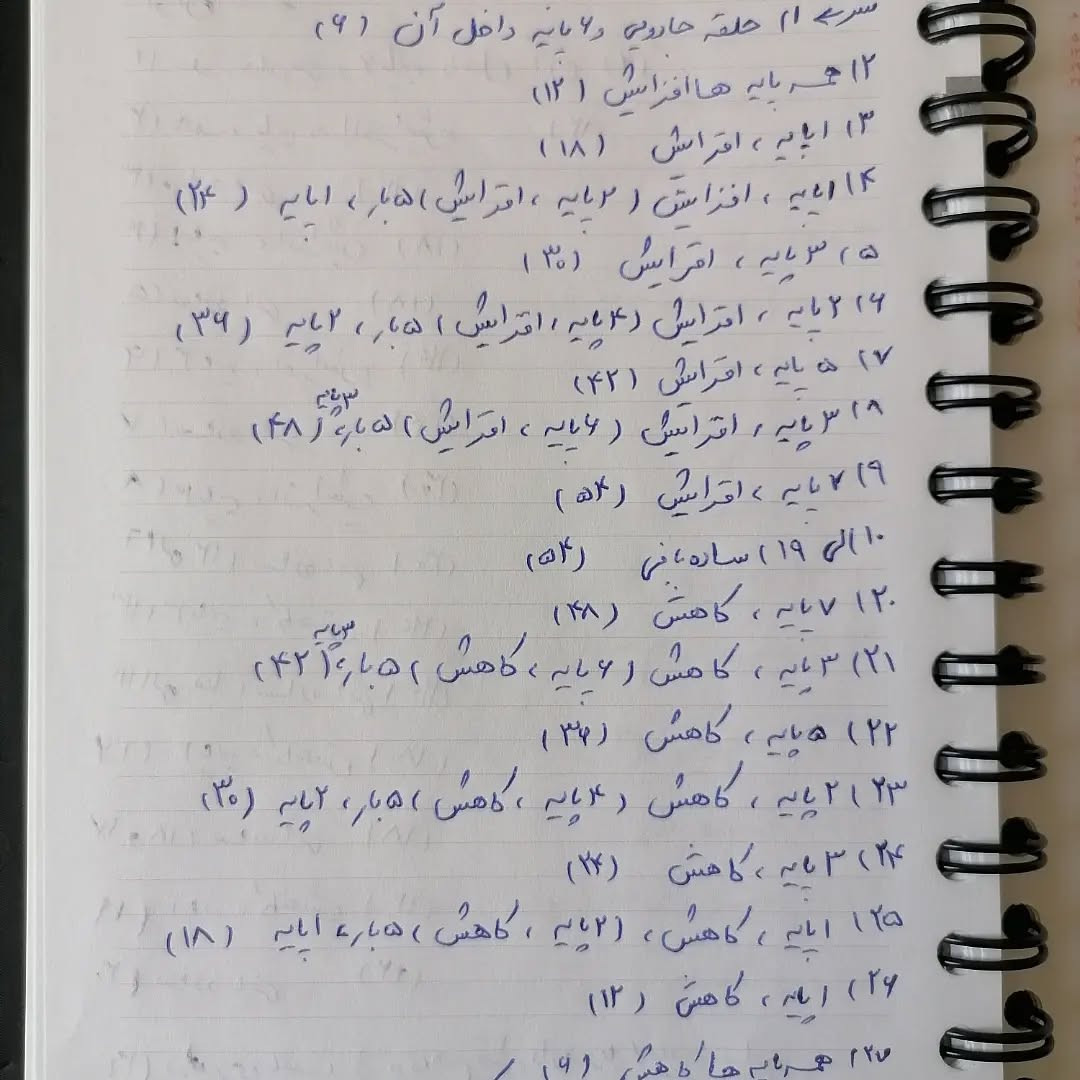 سر ۱) حلقه جادویی و ۶ پایه داخل آن (۶)
۲) همه پایه ها افزایش (۱۲)
۳) ۱ پایه، افزایش (۱۸)
۴) ۱ پایه، افزایش (۲ پایه، افزایش) ۵ بار، ۱ پایه (۲۴)
۵) ۳ پایه، افزایش (۳۰)
۶) ۲ پایه، افزایش (۴ پایه، افزایش) ۵ بار، ۲ پایه (۳۶)
۷) ۵ پایه، افزایش (۴۲)
۸) ۳ پایه، افزایش (۶ پایه، افزایش) ۵ بار، ۳ پایه (۴۸)
۹) ۷ پایه، افزایش (۵۴)
۱۰) الی ۱۹) ساده بافی (۵۴)
۲۰) ۷ پایه، کاهش (۴۸)
۲۱) ۳ پایه، کاهش (۶ پایه، کاهش) ۵ بار، ۳ پایه (۴۲)
۲۲) ۵ پایه، کاهش (۳۶)
۲۳) ۲ پایه، کاهش (۴ پایه، کاهش) ۵ بار، ۲ پایه (۳۰)
۲۴) ۳ پایه، کاهش (۲۴)
۲۵) ۱ پایه، کاهش، (۲ پایه، کاهش) ۵ بار، ۱ پایه (۱۸)
۲۶) ۱ پایه، کاهش (۱۲)
۲۷) همه پایه ها کاهش (۶)